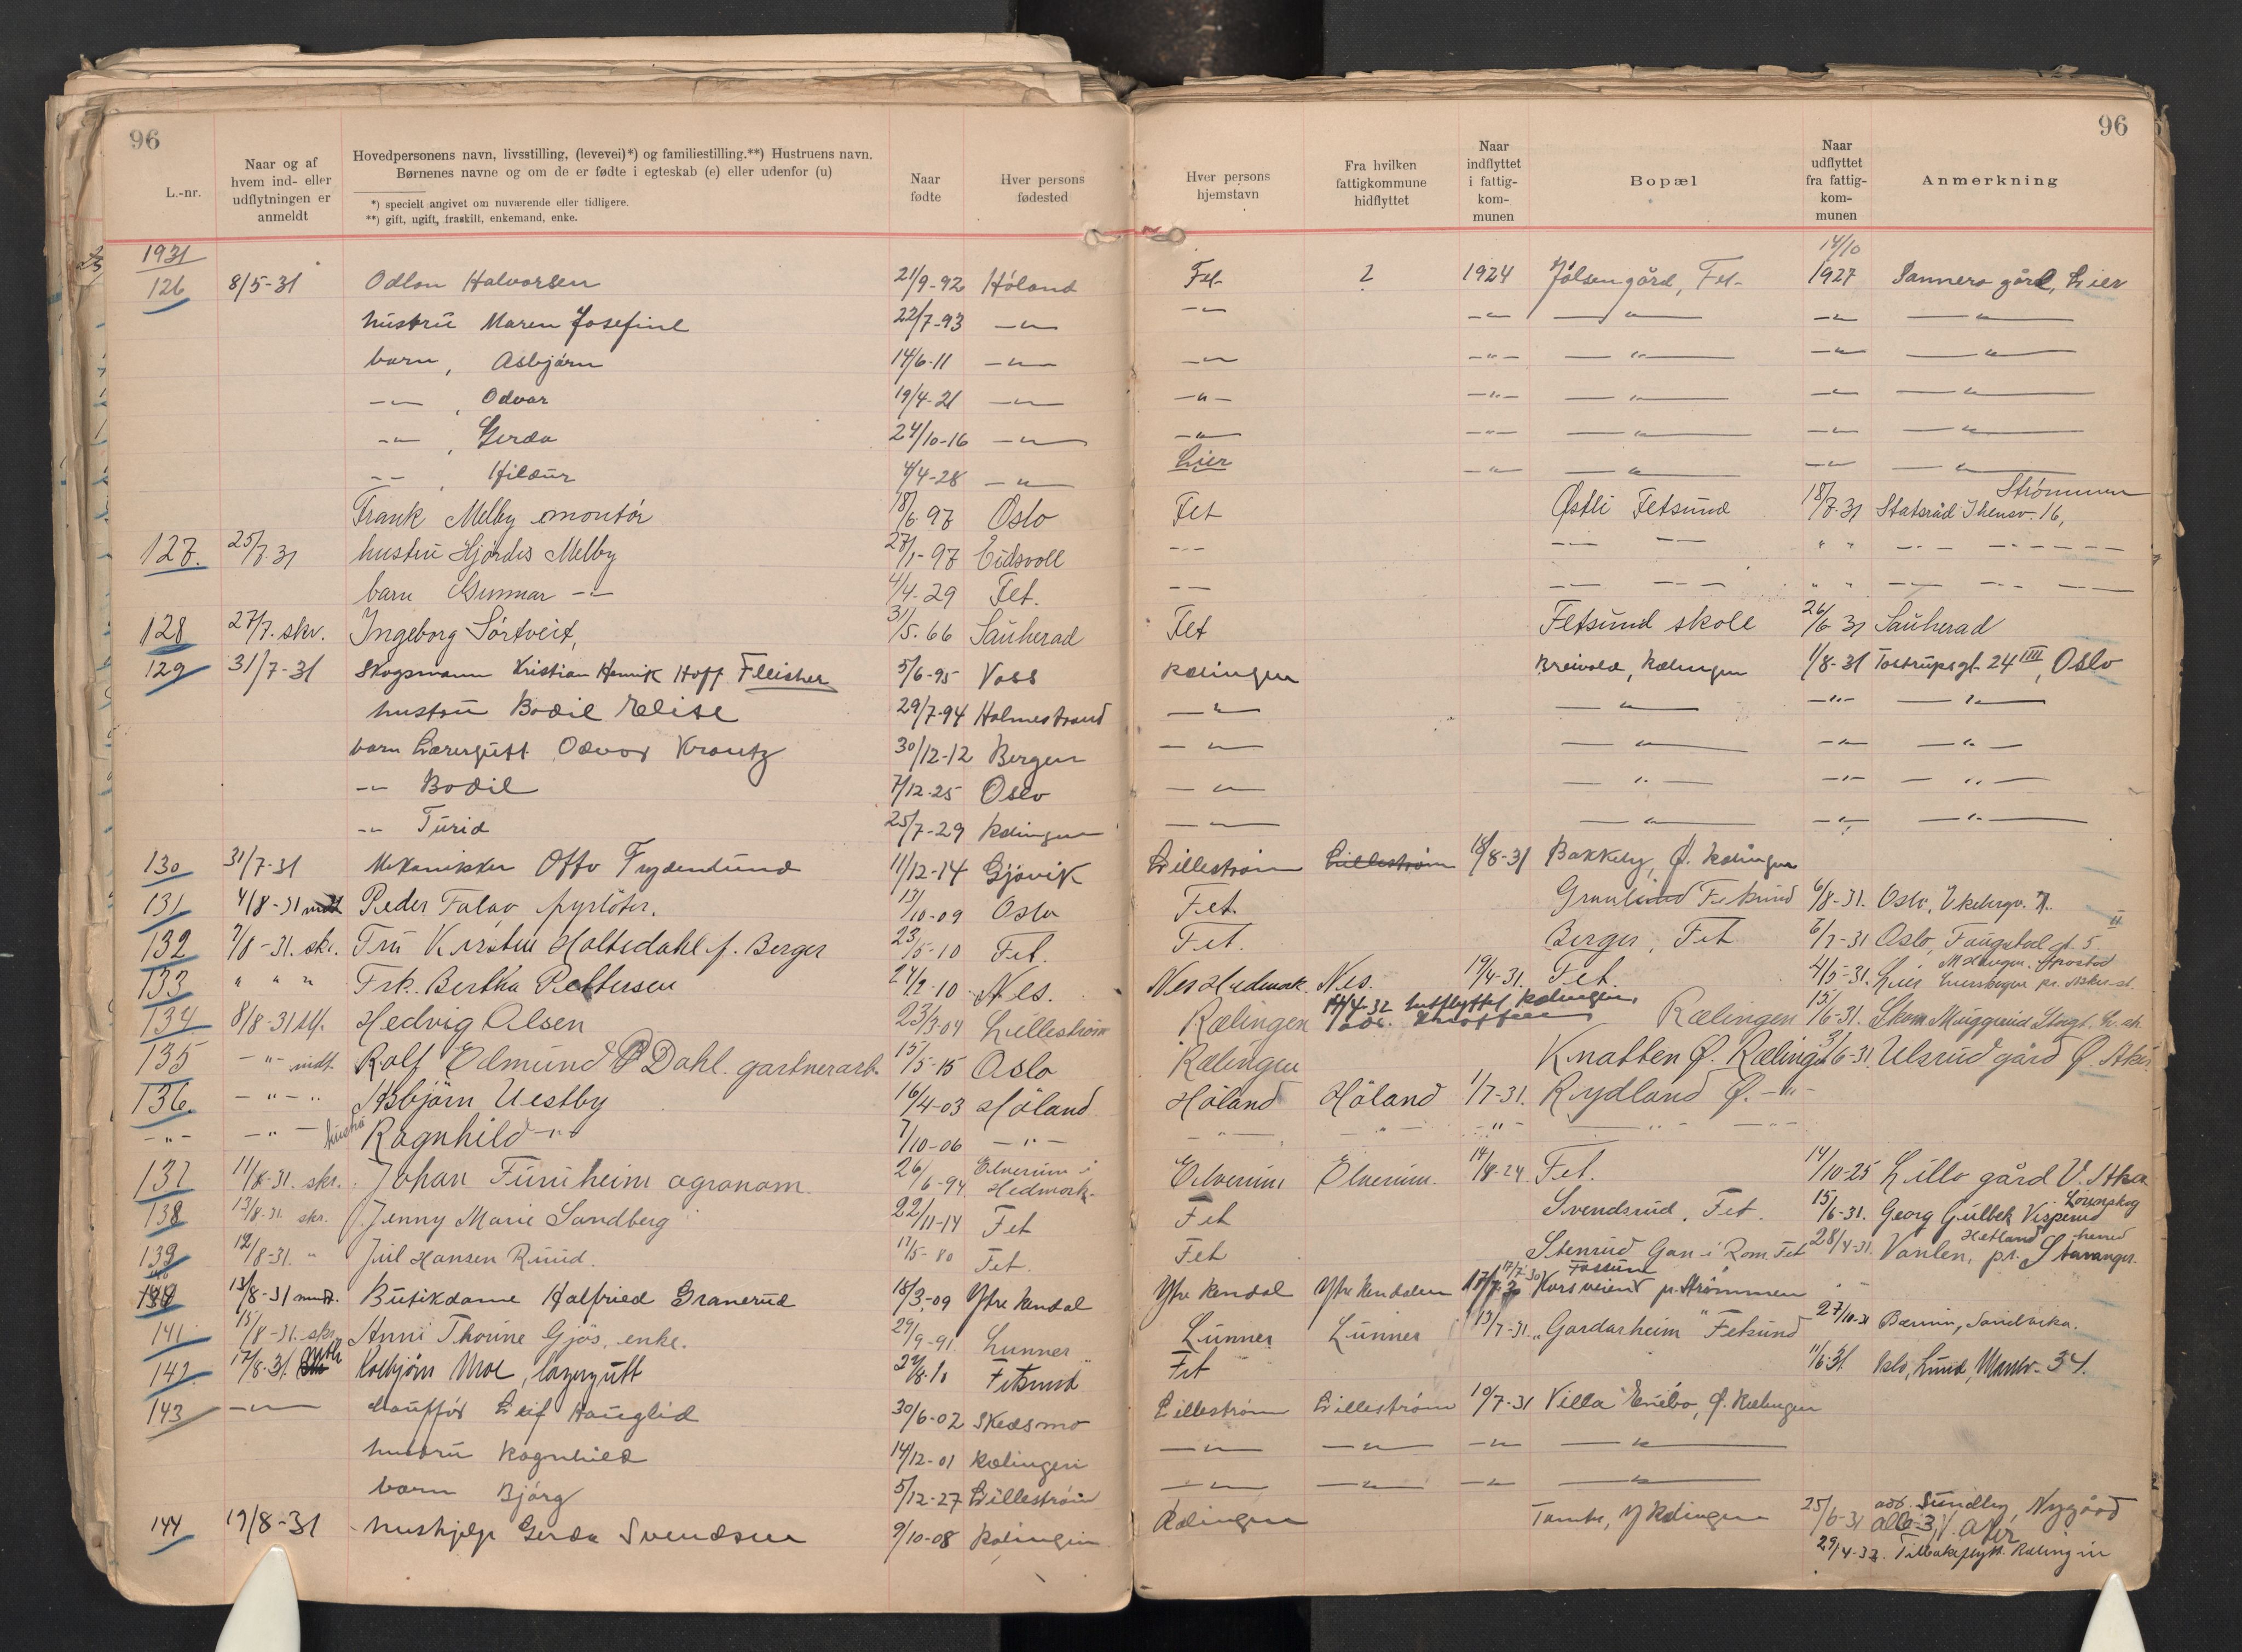 96
L.-nr.
Naar og af hvem ind- eller udflytningen er anmeldt
Hovedpersonens navn, livsstilling, (levevei)*) og familiestilling.**) Hustruens navn.
Børnenes navne og om de er fødte i egteskab (e) eller udenfor (u)
*) specielt angivet om nuværende eller tidligere.
**) gift, ugift, fraskilt, enkemand, enke.
Naar fødte
Hver persons fødested
Hver persons hjemstavn
Fra hvilken fattigkommune hidflyttet
Naar indflyttet i fattig-kom-munen
Bopæl
Naar udflyttet fra fattig-kom-munen
Anmerkning
96
1931
14/10
126 8/5-31 Odlon Halvorsen 21/9-92 Höland Fet ? 1924 Jölsengård, Fet 1927 Sannera gård, Lier
hustru Maren Josefine 22/7-93 -"- -"- -"- -"- -"- -"-
barn, Asbjörn 14/6-11 -"- -"- -"- -"- -"- -"-
-"-, Odvar 19/4-21 -"- -"- -"- -"- -"- -"-
-"-, Gerda 24/10-16 -"- -"- -"- -"- -"- -"-
-"-, Hildur 4/4-28 -"- Lier -"- -"- -"- -"-
Frank Melby montör 18/6-97 Oslo Fet Østli Fetsund 18/7-31 Statsråd Ihensv. 16, Strømmen
127. 25/7-31 hustru Hjördis Melby 27/1-97 Eidsvoll -"- -"- -"- " " -"-
barn Gunnar -"- 4/4-29 Fet. -"- -"- -"- " " -"-
128 27/7. skr. Ingeborg Sörtveit, 31/5.66 Sauherad Fet Fetsund skole 26/6 31 Sauherad
129 31/7-31 Skogsmann Kristian Henrik Hoff Fleischer 5/6-95 Voss Rælingen Breivold, Rælingen 1/8-31 Tostrupsgt. 24 III, Oslo
hustru Bodil Elise 29/7-94 Holmestrand -"- -"- -"- -"-
barn Lærergutt Odvar Krantz 30/12-12 Bergen -"- -"- -"- -"-
-"- Bodil 7/12-25 Oslo -"- -"- -"- -"-
-"- Turid 25/7-29 Rælingen -"- -"- -"- -"-
130 31/7-31 Mekaniker Otto Frydenlund 11/12-14 Gjövik Lilleström Lilleström 18/8-31 Bakkely, Ø. Rælingen
131 4/8-31 mdt Peder Falao fyrböter. 13/10-09 Oslo Fet. Granlund Fetsund 6/8-31. Oslo,
132 7/8-31. skr. Fru Kirsten Holtedahl f. Berger 23/5-10 Fet. Fet. Berger, Fet 6/7-31 Oslo, Faugstad gt. 5. II
133 " " " Frk. Bertha Pettersen 24/2-10 Nes. Nes Hedmark. Nes. 19/4-31. Fet. 4/5-31. Lier
134 8/8-31 Hedvig Olsen 23/3-04 Lilleström Rælingen 14/4-32 Innflyttet Rælingen Rælingen 15/6-31.
135 -"- mdt. Rolf Edmund P Dahl. gartnerarb. 15/5-15 Oslo Rælingen Knatten Ø. Rælingen 6-31 Ulsrud gård Ø. Aker
136. -"- " Asbjörn Vestby 16/4-03 Höland Höland Höland 1/7-31. Rydland Ø. -"-
-"- -"- hustru Ragnhild -"- 7/10-06 -"- -"- -"- -"- -"- -"-
137 11/8-31. skr. Johan Furuheim agronom. 26/6-94 Elverum i Hedmark. Elverum Elverum. 14/8-24 Fet. 14/10-25 Lillo gård V. Aker
138 13/8-31. skr. Jenny Marie Sandberg 22/11-14 Fet Fet Svendsrud, Fet. 15/6-31. Georg Gulbek Visperud Lörenskog
139 12/8-31. " Jul Hansen Ruud. 17/5-80 Fet. Fet Stenrud Gan i Rom. Fet 28/4-31. Vanlen, Hetland herred pr. Stavanger.
140 13/8-31 mdt. Butikdame Halfried Granerud 18/3-09 Ytre Rendal Ytre Rendal Ytre Rendalen 17/7-30 Fossum Korsveien pr. Strömmen
141 15/8-31. skr. Anni Thorine Gjös, enke. 29/9-91. Lunner Lunner Lunner 13/7-31. "Gardarheim" Fetsund 27/10-31 Bærum, Sandvika.
142. 17/8-31. mdtl Kolbjörn Moe, lagergutt 24/8-10 Fetsund Fet 11/6-31 Oslo, Lund, 34.
143 -"- Chauffør Leif Hauglid 30/6-02 Skedsmo Lilleström Lilleström 10/7-31 Villa Enebo, Ø. Rælingen
hustru Ragnhild 14/12-01 Rælingen -"- -"- -"- -"-
barn Björg 5/12-27 Lilleström -"- -"- -"- -"-
144 19/8-31 hushjelp Gerda Svendsen 9/10-08 Rælingen Rælingen Tomte, Y Rælingen 25/6-31 adr. Sundby, Nygård
V. Aker
29/4-32. Tilbakeflytt. Rælingen